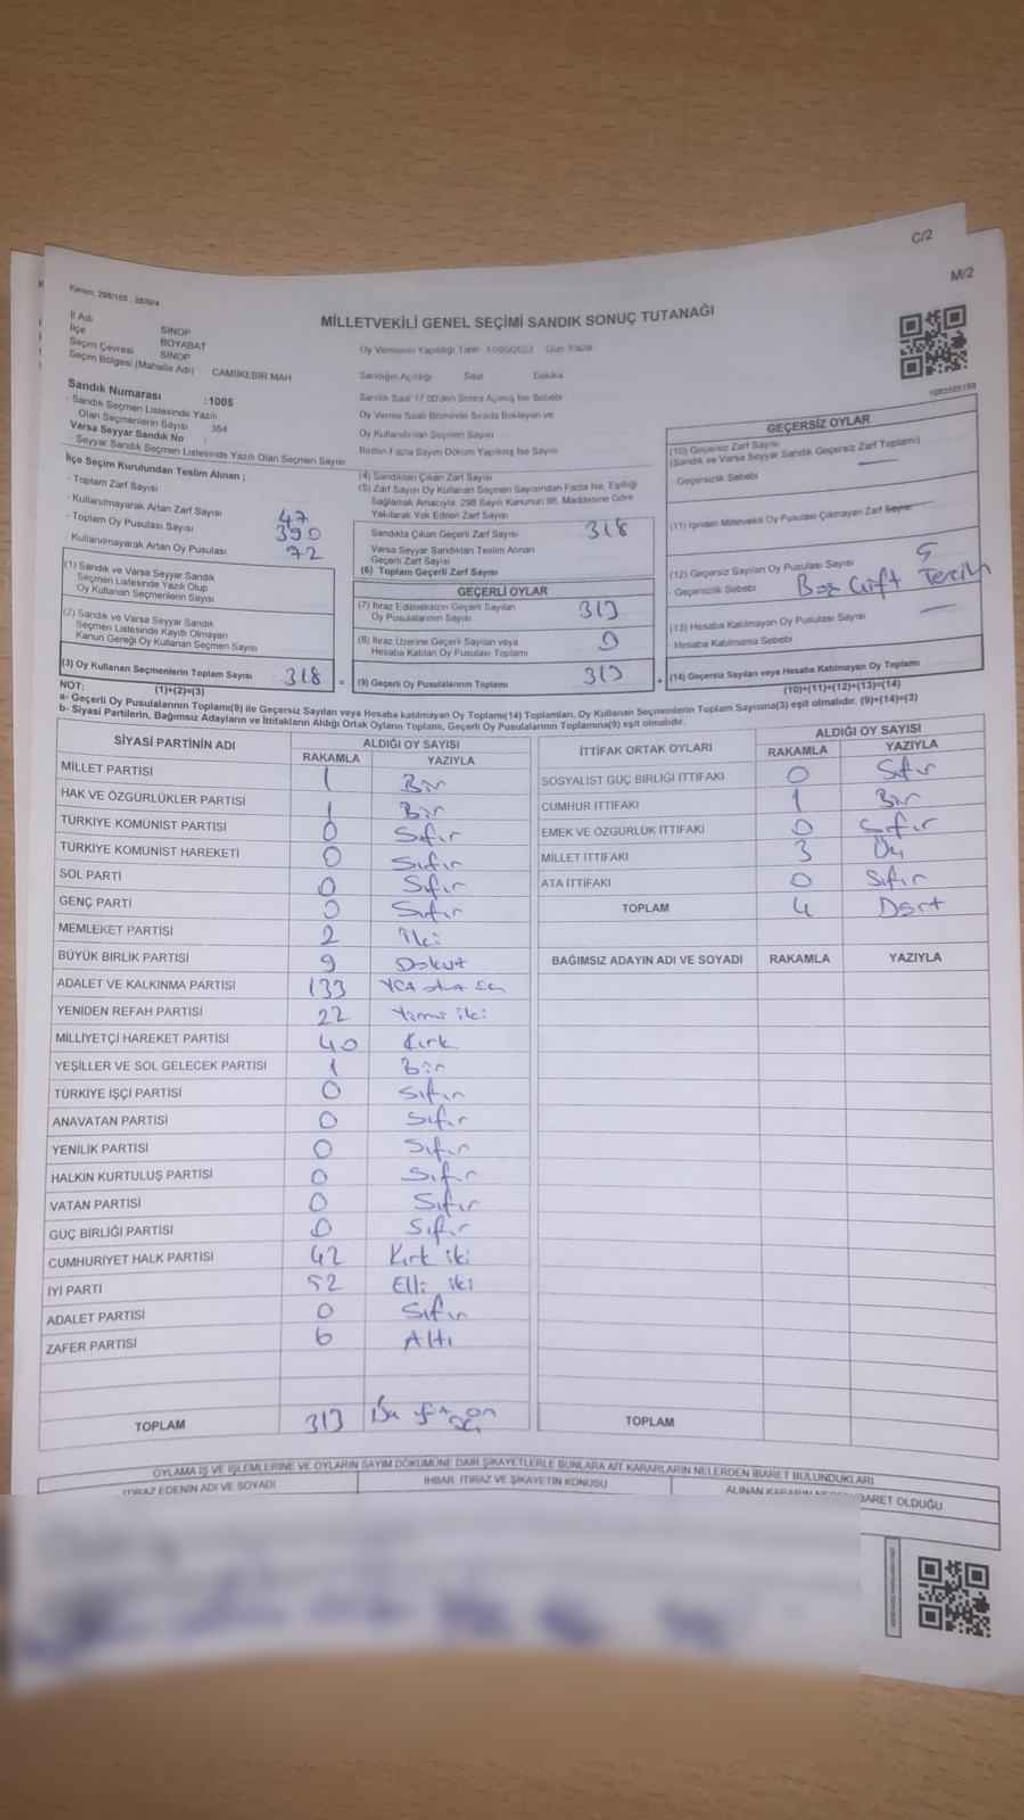 C/2
M/2
MİLLETVEKİLİ GENEL SEÇİMİ SANDIK SONUÇ TUTANAĞI
İl Adı SİNOP
İlçe BOYABAT
Seçim Çevresi SİNOP
Seçim Bölgesi (Mahalle Adı) CAMİİKEBİR MAH
Sandık Numarası :1005
Sandık Seçmen Listesinde Yazılı
Olan Seçmenlerin Sayısı 364
Varsa Seyyar Sandık No :
Seyyar Sandık Seçmen Listesinde Yazılı Olan Seçmen Sayısı
İlçe Seçim Kurulundan Teslim Alınan ;
- Toplam Zarf Sayısı
- Kullanılmayarak Artan Zarf Sayısı 47
- Toplam Oy Pusulası Sayısı 390
Kullanılmayarak Artan Oy Pusulası 72
(1) Sandık ve Varsa Seyyar Sandık
Seçmen Listesinde Yazılı Olup
Oy Kullanan Seçmenlerin Sayısı
(2) Sandık ve Varsa Seyyar Sandık
Seçmen Listesinde Kayıtlı Olmayan
Kanun Gereği Oy Kullanan Seçmen Sayısı
(3) Oy Kullanan Seçmenlerin Toplam Sayısı 318
(1)+(2)=(3)
Sandığın Açıldığı Saat Dakika
Oy Kullandırılan Seçmen Sayısı
(4) Sandıktan Çıkan Zarf Sayısı
(5) Zarf Sayısı Oy Kullanan Seçmen Sayısından Fazla İse, Eşitliği
Sağlamak Amacıyla, 298 Sayılı Kanunun 98. Maddesine Göre
Yakılarak Yok Edilen Zarf Sayısı
Sandıkta Çıkan Geçerli Zarf Sayısı 318
Varsa Seyyar Sandıktan Teslim Alınan
Geçerli Zarf Sayısı
(6) Toplam Geçerli Zarf Sayısı
GEÇERLİ OYLAR
(7) İtiraz Edilmeksizin Geçerli Sayılan
Oy Pusulalarının Sayısı 313
(8) İtiraz Üzerine Geçerli Sayılan veya
Hesaba Katılan Oy Pusulası Toplamı
(9) Geçerli Oy Pusulalarının Toplamı 313
GEÇERSİZ OYLAR
(10) Geçersiz Zarf Sayısı
(Sandık ve Varsa Seyyar Sandık Geçersiz Zarf Toplamı)
Geçersizlik Sebebi
(11) İçinden Milletvekili Oy Pusulası Çıkmayan Zarf Sayısı
(12) Geçersiz Sayılan Oy Pusulası Sayısı 5
Geçersizlik Sebebi Boş Çift Tercih
(13) Hesaba Katılmayan Oy Pusulası Sayısı
Hesaba Katılmama Sebebi
(14) Geçersiz Sayılan veya Hesaba Katılmayan Oy Toplamı
(10)+(11)+(12)+(13)=(14)
NOT:
a- Geçerli Oy Pusulalarının Toplamı(9) ile Geçersiz Sayılan veya Hesaba katılmayan Oy Toplamı(14) Toplamları, Oy Kullanan Seçmenlerin Toplam Sayısına(3) eşit olmalıdır. (9)+(14)=(3)
b- Siyasi Partilerin, Bağımsız Adayların ve İttifakların Aldığı Ortak Oyların Toplamı, Geçerli Oy Pusulalarının Toplamına(9) eşit olmalıdır.
SİYASİ PARTİNİN ADI ALDIĞI OY SAYISI
RAKAMLA YAZIYLA
MİLLET PARTİSİ 1 Bir
HAK VE ÖZGÜRLÜKLER PARTİSİ 1 Bir
TÜRKİYE KOMÜNİST PARTİSİ 0 Sıfır
TÜRKİYE KOMÜNİST HAREKETİ 0 Sıfır
SOL PARTİ 0 Sıfır
GENÇ PARTİ 0 Sıfır
MEMLEKET PARTİSİ 2 İki
BÜYÜK BİRLİK PARTİSİ 9 Dokuz
ADALET VE KALKINMA PARTİSİ 133
YENİDEN REFAH PARTİSİ 22 Yirmi iki
MİLLİYETÇİ HAREKET PARTİSİ 40 Kırk
YEŞİLLER VE SOL GELECEK PARTİSİ 1 Bir
TÜRKİYE İŞÇİ PARTİSİ 0 Sıfır
ANAVATAN PARTİSİ 0 Sıfır
YENİLİK PARTİSİ 0 Sıfır
HALKIN KURTULUŞ PARTİSİ 0 Sıfır
VATAN PARTİSİ 0 Sıfır
GÜÇ BİRLİĞİ PARTİSİ 0 Sıfır
CUMHURİYET HALK PARTİSİ 42 Kırk iki
İYİ PARTİ 52 Elli iki
ADALET PARTİSİ 0 Sıfır
ZAFER PARTİSİ 6 Altı
TOPLAM 313
İTTİFAK ORTAK OYLARI ALDIĞI OY SAYISI
RAKAMLA YAZIYLA
SOSYALİST GÜÇ BİRLİĞİ İTTİFAKI 0 Sıfır
CUMHUR İTTİFAKI 1 Bir
EMEK VE ÖZGÜRLÜK İTTİFAKI 0 Sıfır
MİLLET İTTİFAKI 3 Üç
ATA İTTİFAKI 0 Sıfır
TOPLAM 4 Dört
BAĞIMSIZ ADAYIN ADI VE SOYADI RAKAMLA YAZIYLA
TOPLAM
OYLAMA İŞ VE İŞLEMLERİNE VE OYLARIN SAYIM DÖKÜMÜNE DAİR ŞİKAYETLERLE BUNLARA AİT KARARLARIN NELERDEN İBARET BULUNDUKLARI
İTİRAZ EDENİN ADI VE SOYADI İHBAR, İTİRAZ VE ŞİKAYETİN KONUSU ALINAN
OLDUĞU